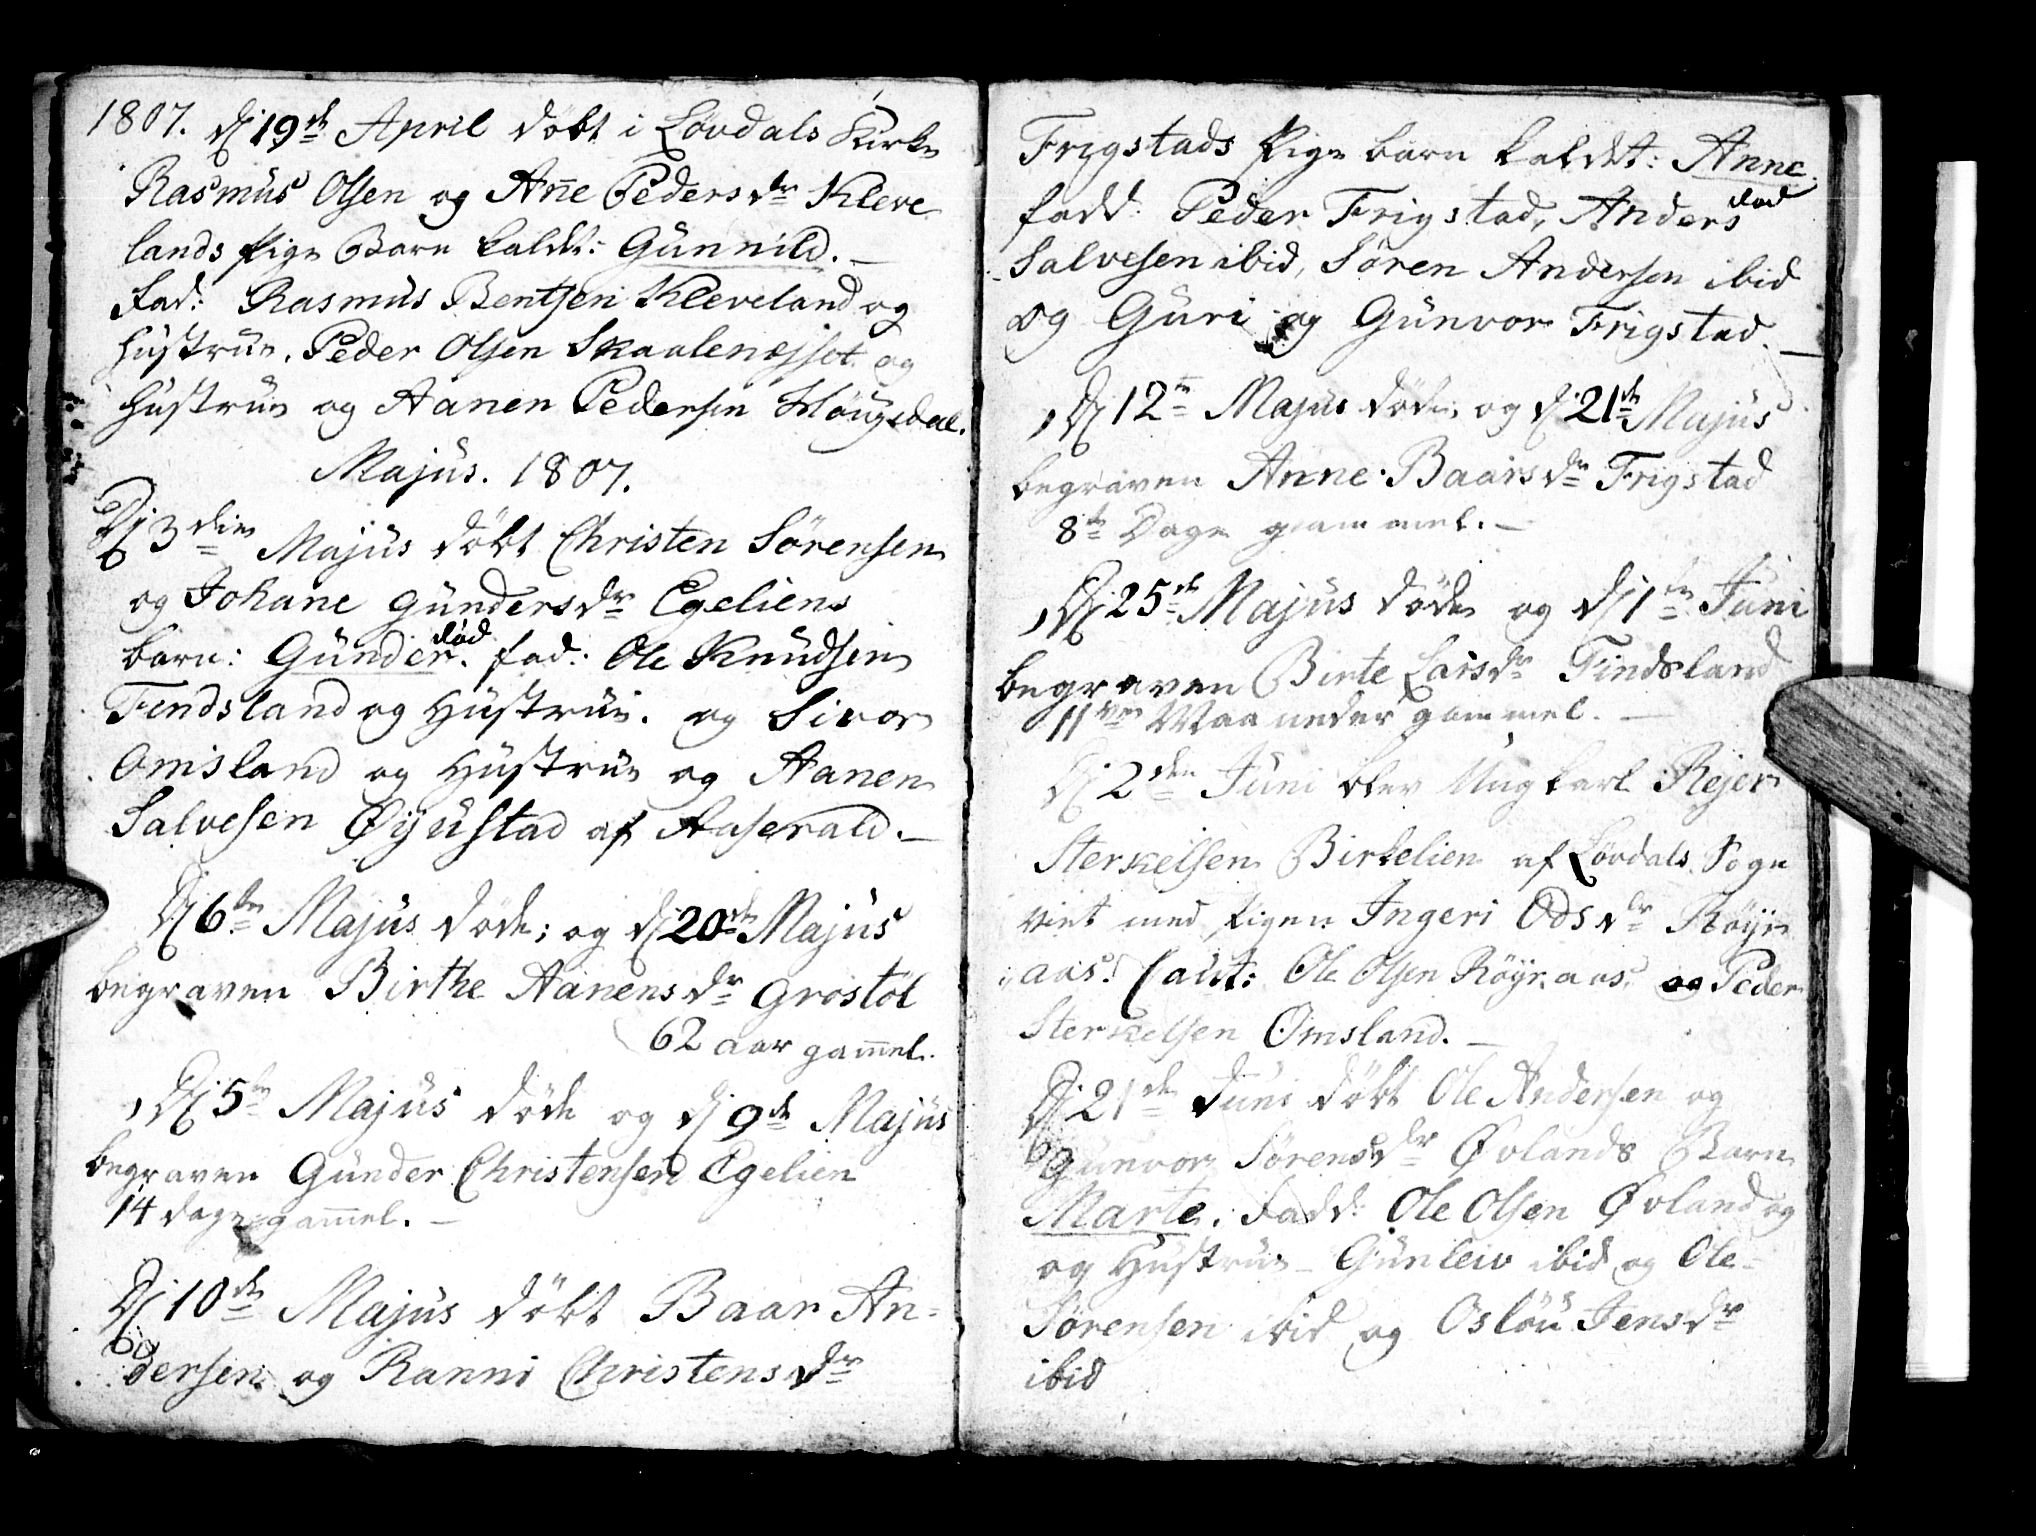 1807. dj 19de April döbt i Lövdals Kirke
Rasmüs Olsen og Añe Pedersdr Kleve
lands Pige Barn kaldt: Günnild. —
fad: Rasmüs Bentsen Kleveland og
Hüstrüe. Peder Olsen Skaalenesset og
Hüstrüe og Aanen Pedersen Höugsdal.
Majüs. 1807.
Dj 3die Majüs döbt Christen Sörensen
og Johane Gündersdr Egeliens
död
barn: Günder. fad: Ole Knüdsen
Findsland og Hüstrüe. og Sivor
Omsland og Hüstrüe og Aanen
Salvesen Øyüstad af Aaserald. —
Dj 6te Majüs döde; og dj 20de Majüs
begraven Birthe Aanensdr Grostöl
62 aar gam̄el.
Dj 5te Majüs döde og dj 9de Majüs
begraven Günder Christensen Egelien
14 dage gam̄el. —
Dj 10de Majüs döbt Baar An-
dersen og Ranni Christensdr
Frigstads Pige barn kaldet: Anne.
död
fadd: Peder Frigstad, Anders
Salvesen ibid, Sören Andersen ibid
og Güri og Günvor Frigstad. —
Dj 12te Majüs döde, og dj 21de Majüs
begraven Anne Baarsdr Frigstad
8te Dage gammel. —
Dj 25de Majüs döde og dj 1te Juni
begraven Birte Larsdr Findsland
11ve Maaneder gammel. —
Dj 2den Juni blev Ungkarl Rejer
Sterkelsen Birkelien af Lövdals Sogn
viet med Pigen Ingeri Odsdr Röÿr
aas. Caut: Ole Olsen Röÿraas. og Peder
Sterkelsen Omsland. —
Dj 21de Juni döbt Ole Andersen og
Günvor Sörensdr Øvlands Barn
Marte. Fadd: Ole Olsen Øvland og
og Hüstrüe – Günleiv ibid og Ole
Sörensen ibid og Oslöü Jensdr
ibid